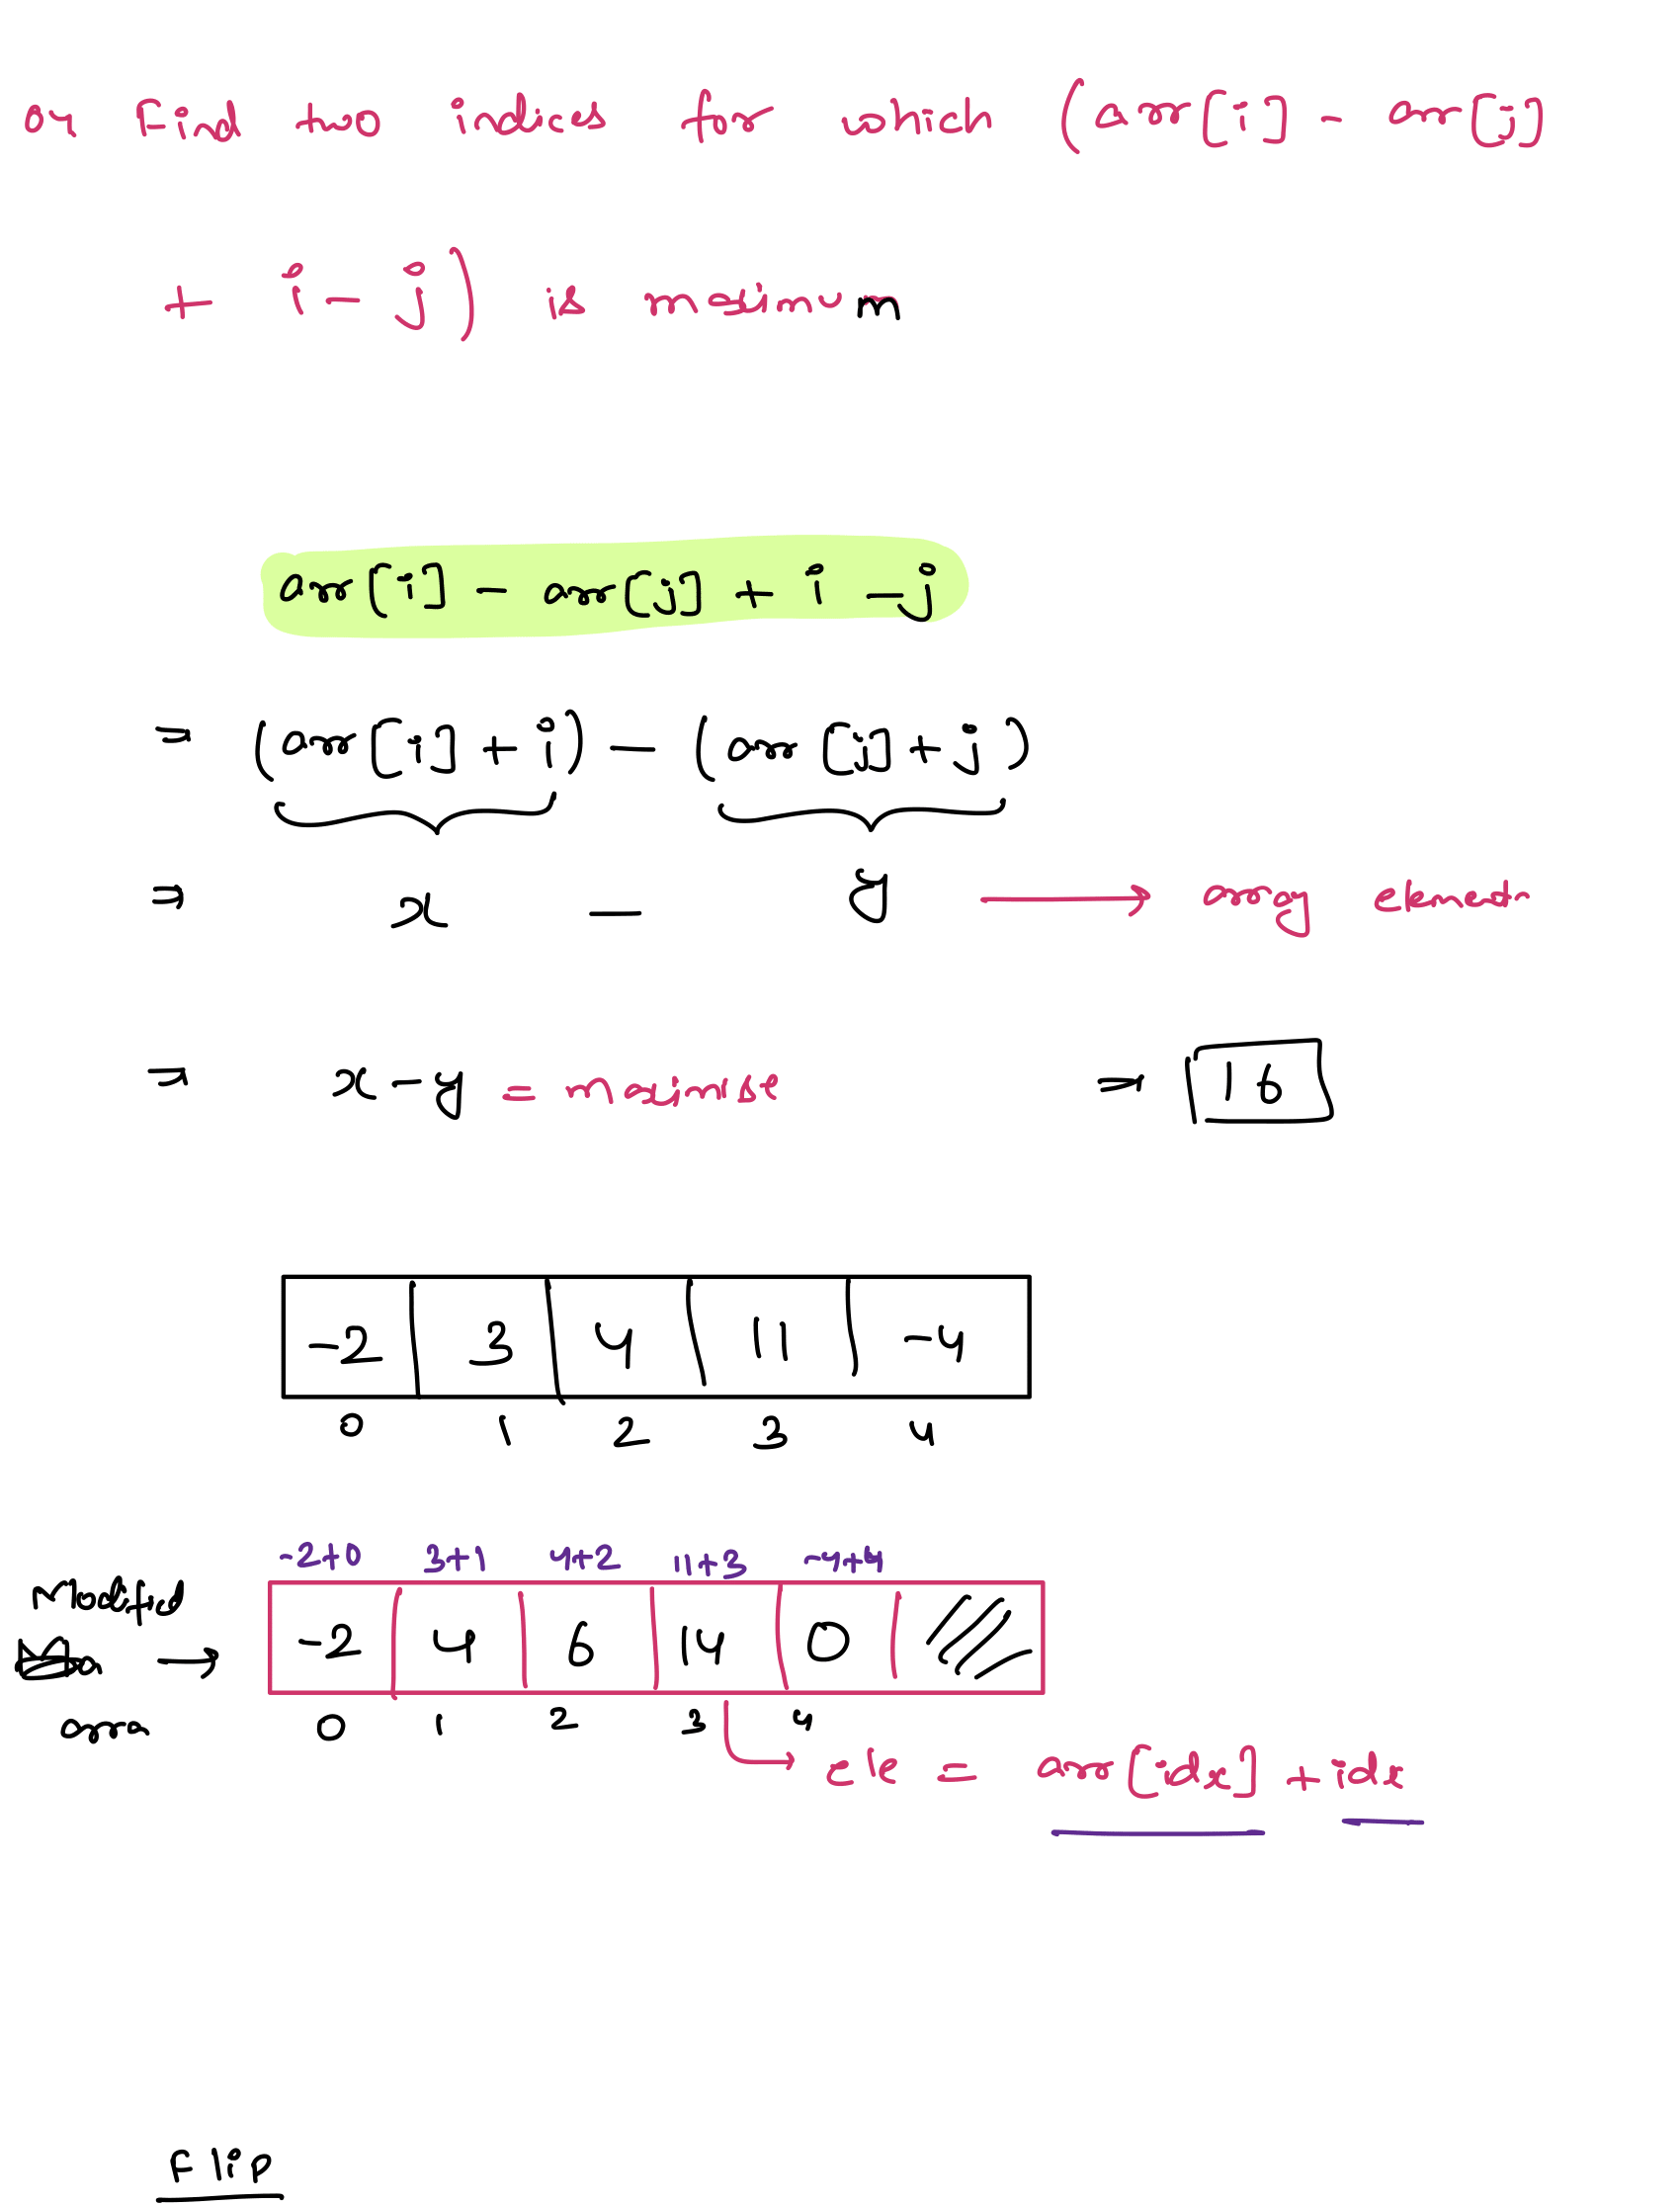 Find two indices for which (arr[i] - arr[j]
+ i - j) is maximum
arr[i] - arr[j] + i - j
= (arr[i] + i) - (arr[j] + j)
= x - y → array elements
= x - y = maximise ⇒ 16
-2 3 4 11 -4
0 1 2 3 4
-2+0 3+1 4+2 11+3 -4+4
Modified → -2 4 6 14 0
0 1 2 3 4
ele = arr[idx] + idx
Flip